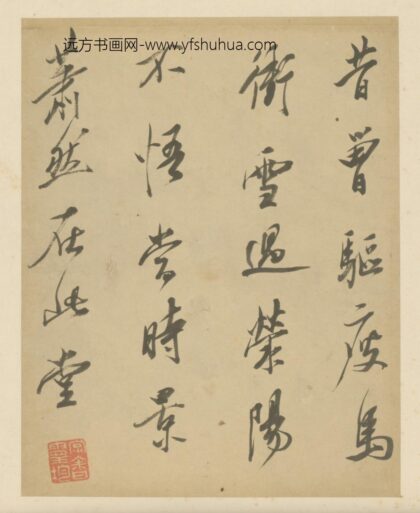 远方书画网-www.yfshuhua.com
昔曾驅疲馬
衝雪過滎陽
不悟當時景
蕭然在此堂